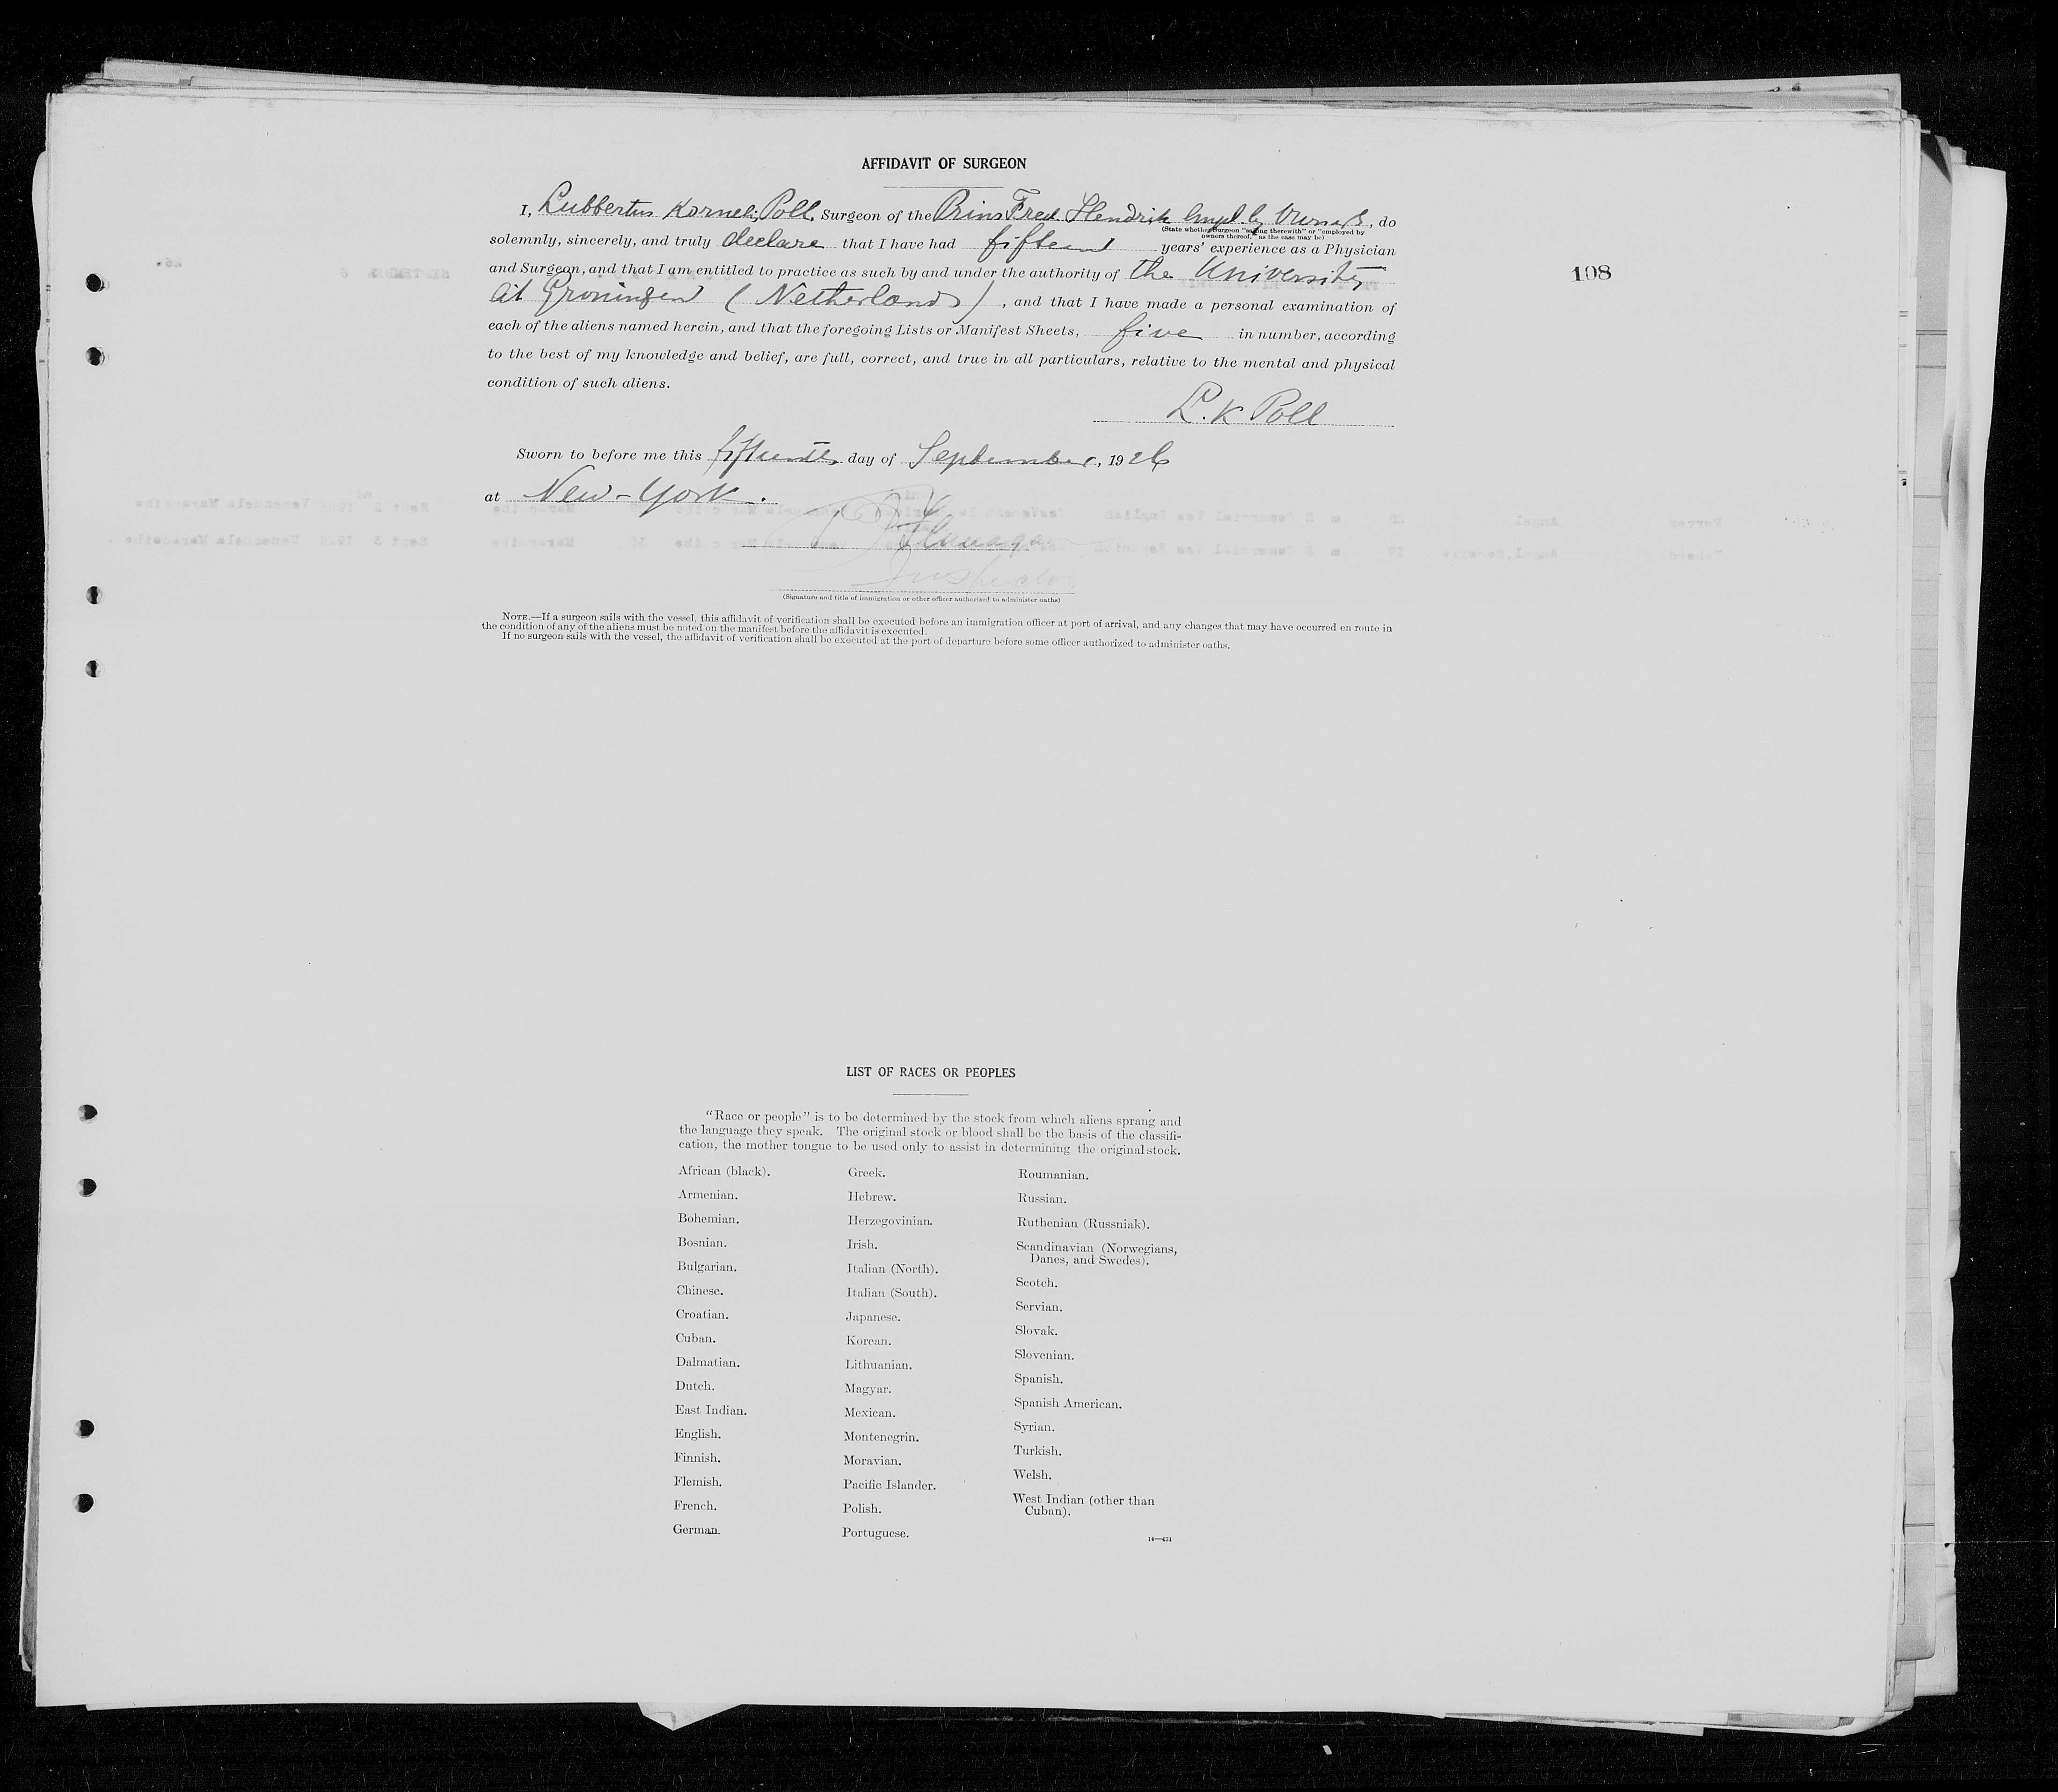 AFFIDAVIT OF SURGEON
I, Lubbertus Kornelis Poll, Surgeon of the Prins Fred. Hendrik Empl. by Owners, do
(State whether Surgeon "sailing therewith" or "employed by
owners thereof," as the case may be)
solemnly, sincerely, and truly declare that I have had fifteen years' experience as a Physician
and Surgeon, and that I am entitled to practice as such by and under the authority of the University
at Groningen (Netherlands), and that I have made a personal examination of
each of the aliens named herein, and that the foregoing Lists or Manifest Sheets, five in number, according
to the best of my knowledge and belief, are full, correct, and true in all particulars, relative to the mental and physical
condition of such aliens.
L. K Poll
Sworn to before me this fifteenth day of September, 1926
at New-York.
Flanagan
Inspector
(Signature and title of immigration or other officer authorized to administer oaths)
NOTE.—If a surgeon sails with the vessel, this affidavit of verification shall be executed before an immigration officer at port of arrival, and any changes that may have occurred en route in
the condition of any of the aliens must be noted on the manifest before the affidavit is executed.
If no surgeon sails with the vessel, the affidavit of verification shall be executed at the port of departure before some officer authorized to administer oaths.
108
LIST OF RACES OR PEOPLES
"Race or people" is to be determined by the stock from which aliens sprang and
the language they speak. The original stock or blood shall be the basis of the classifi-
cation, the mother tongue to be used only to assist in determining the original stock.
African (black).
Armenian.
Bohemian.
Bosnian.
Bulgarian.
Chinese.
Croatian.
Cuban.
Dalmatian.
Dutch.
East Indian.
English.
Finnish.
Flemish.
French.
German.
Greek.
Hebrew.
Herzegovinian.
Irish.
Italian (North).
Italian (South).
Japanese.
Korean.
Lithuanian.
Magyar.
Mexican.
Montenegrin.
Moravian.
Pacific Islander.
Polish.
Portuguese.
Roumanian.
Russian.
Ruthenian (Russniak).
Scandinavian (Norwegians,
Danes, and Swedes).
Scotch.
Servian.
Slovak.
Slovenian.
Spanish.
Spanish American.
Syrian.
Turkish.
Welsh.
West Indian (other than
Cuban).
14—431